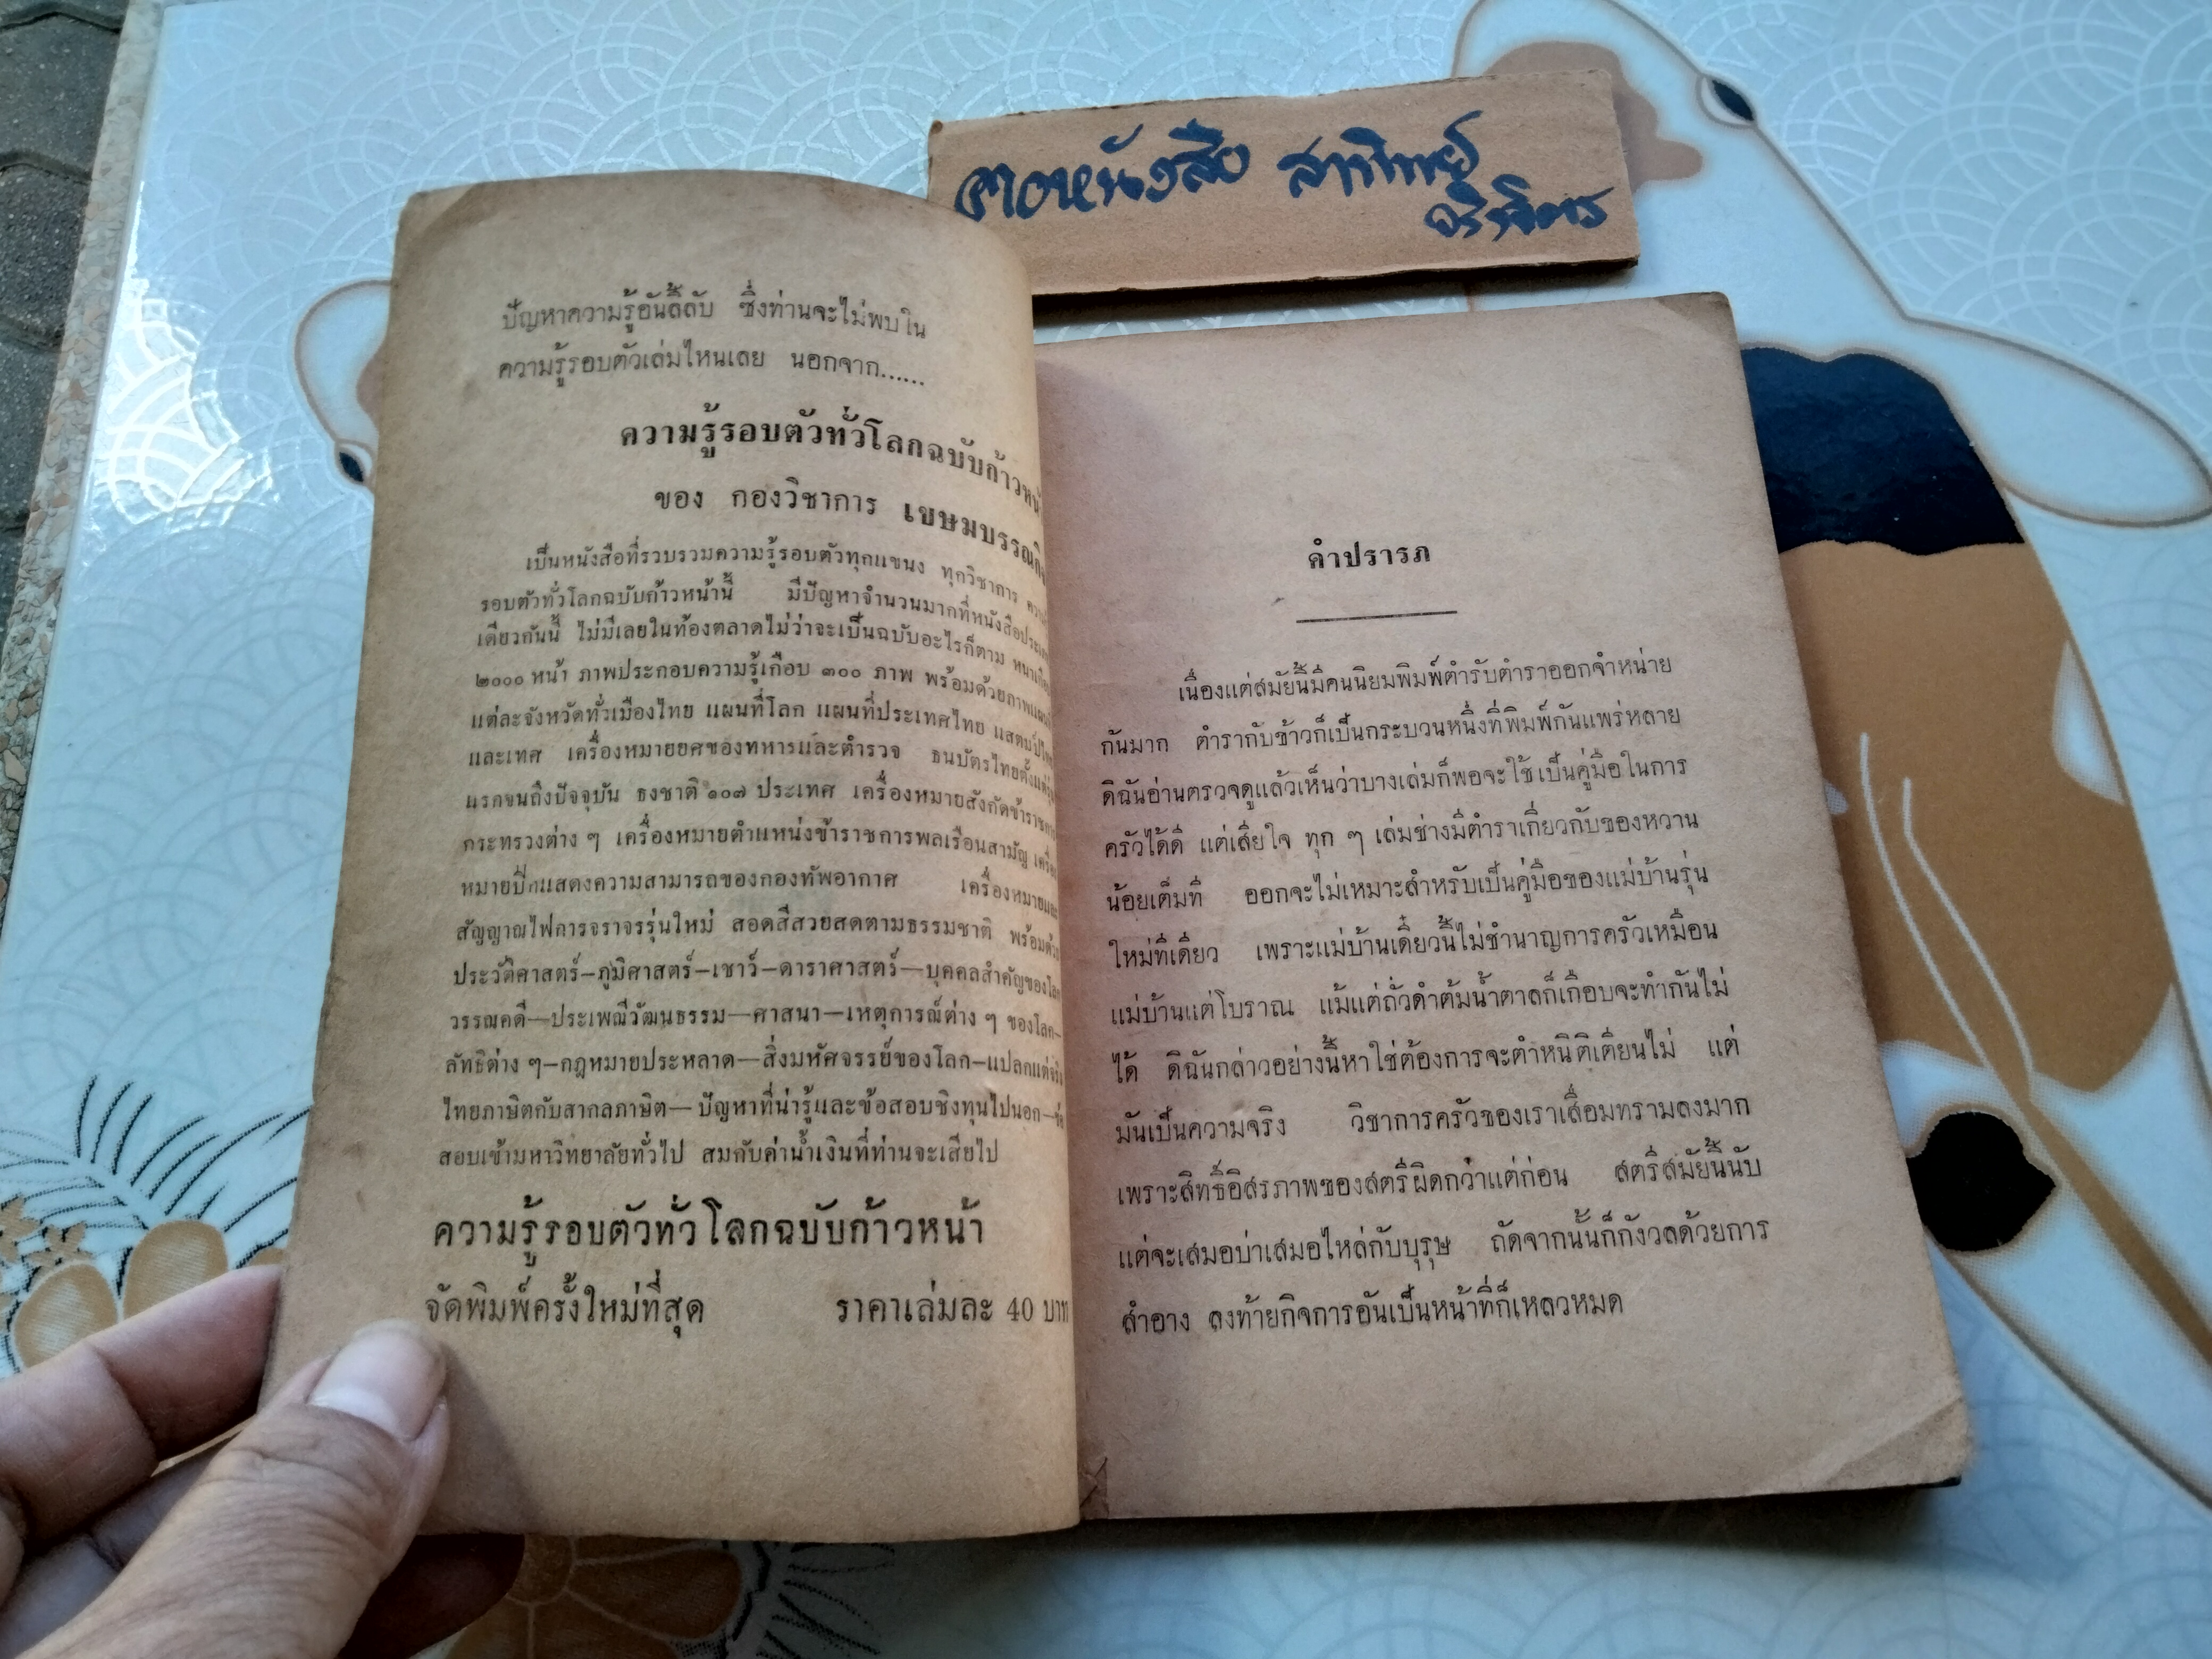 ปัญหาความรู้อันลี้ลับ ซึ่งท่านจะไม่พบใน
ความรู้รอบตัวเล่มไหนเลย นอกจาก......
ความรู้รอบตัวทั่วโลกฉบับก้าวหน้
ของ กองวิชาการ เขษมบรรณกิจ
เป็นหนังสือที่รวบรวมความรู้รอบตัวทุกแขนง ทุกวิชาการ
รอบตัวทั่วโลกฉบับก้าวหน้านี้ มีปัญหาจำนวนมากที่หนังสือประเภท
เดียวกันนี้ ไม่มีเลยในท้องตลาดไม่ว่าจะเป็นฉบับอะไรก็ตาม หนาเกือบ
๒๐๐๐ หน้า ภาพประกอบความรู้เกือบ ๓๐๐ ภาพ พร้อมด้วยภาพแผนที่
แต่ละจังหวัดทั่วเมืองไทย แผนที่โลก แผนที่ประเทศไทย แสตมป์ไทย
และเทศ เครื่องหมายยศของทหารและตำรวจ ธนบัตรไทยตั้งแต่รุ่น
แรกจนถึงปัจจุบัน ธงชาติ ๑๐๗ ประเทศ เครื่องหมายสังกัดข้าราชการ
กระทรวงต่าง ๆ เครื่องหมายตำแหน่งข้าราชการพลเรือนสามัญ เครื่อง
หมายปีกแสดงความสามารถของกองทัพอากาศ เครื่องหมายและ
สัญญาณไฟการจราจรรุ่นใหม่ สอดสีสวยสดตามธรรมชาติ พร้อมด้วย
ประวัติศาสตร์–ภูมิศาสตร์–เชาว์–ดาราศาสตร์—บุคคลสำคัญของโลก
วรรณคดี—ประเพณีวัฒนธรรม—ศาสนา—เหตุการณ์ต่าง ๆ ของโลก–
ลัทธิต่าง ๆ–กฎหมายประหลาด—สิ่งมหัศจรรย์ของโลก–แปลกแต่จริง
ไทยภาษิตกับสากลภาษิต— ปัญหาที่น่ารู้และข้อสอบชิงทุนไปนอก—ข้อ
สอบเข้ามหาวิทยาลัยทั่วไป สมกับค่าน้ำเงินที่ท่านจะเสียไป
ความรู้รอบตัวทั่วโลกฉบับก้าวหน้า
จัดพิมพ์ครั้งใหม่ที่สุด ราคาเล่มละ 40 บาท
คำปรารภ
เนื่องแต่สมัยนี้มีคนนิยมพิมพ์ตำรับตำราออกจำหน่าย
กันมาก ตำรากับข้าวก็เป็นกระบวนหนึ่งที่พิมพ์กันแพร่หลาย
ดิฉันอ่านตรวจดูแล้วเห็นว่าบางเล่มก็พอจะใช้เป็นคู่มือในการ
ครัวได้ดี แต่เสียใจ ทุก ๆ เล่มช่างมีตำราเกี่ยวกับของหวาน
น้อยเต็มที ออกจะไม่เหมาะสำหรับเป็นคู่มือของแม่บ้านรุ่น
ใหม่ทีเดียว เพราะแม่บ้านเดี๋ยวนี้ไม่ชำนาญการครัวเหมือน
แม่บ้านแต่โบราณ แม้แต่ถั่วดำต้มน้ำตาลก็เกือบจะทำกันไม่
ได้ ดิฉันกล่าวอย่างนี้หาใช่ต้องการจะตำหนิติเตียนไม่ แต่
มันเป็นความจริง วิชาการครัวของเราเสื่อมทรามลงมาก
เพราะสิทธิ์อิสรภาพของสตรีผิดกว่าแต่ก่อน สตรีสมัยนี้นับ
แต่จะเสมอบ่าเสมอไหล่กับบุรุษ ถัดจากนั้นก็กังวลด้วยการ
สำอาง ลงท้ายกิจการอันเป็นหน้าที่ก็เหลวหมด